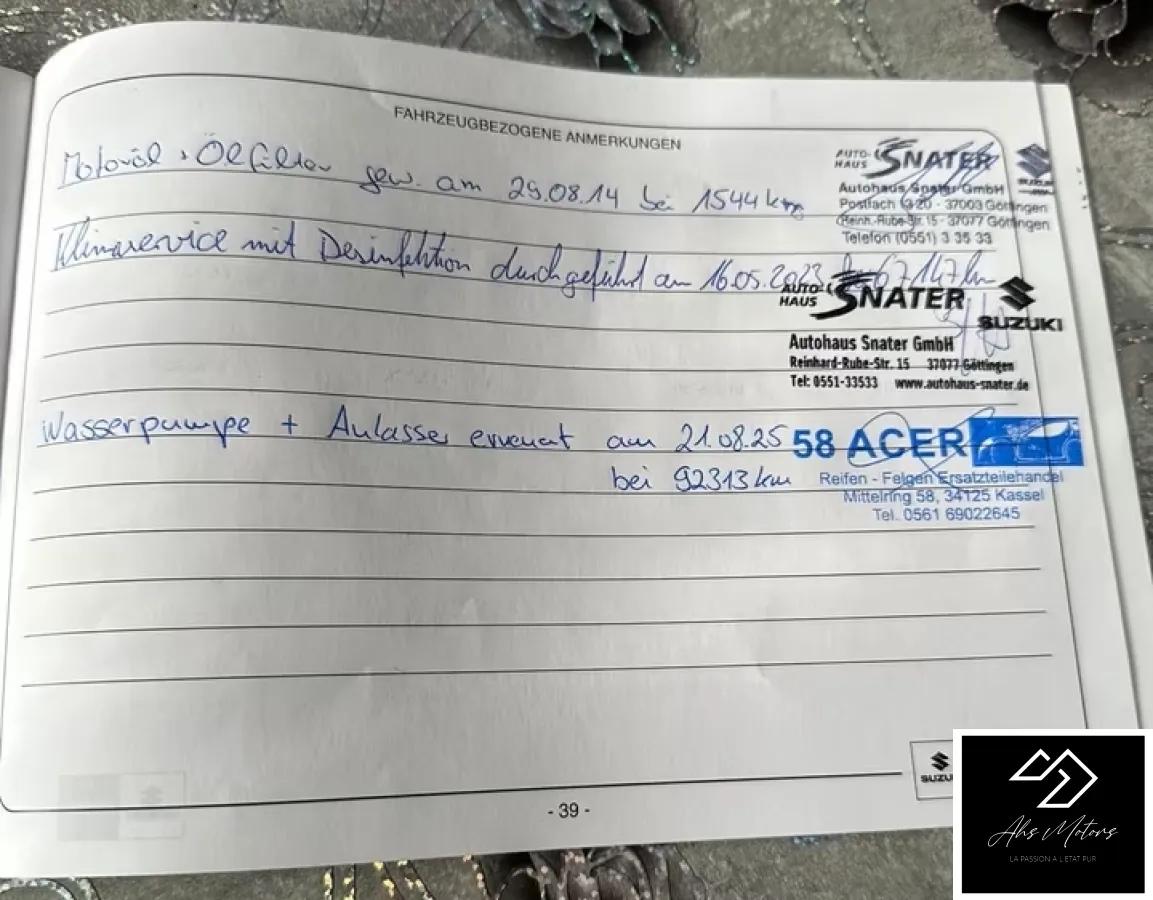 FAHRZEUGBEZOGENE ANMERKUNGEN
Motoröl + Ölfilter gew. am 29.08.14 bei 1544 km
AUTO-HAUS SNATER
SUZUKI
Autohaus Snater GmbH
Postfach 1320 - 37003 Göttingen
Reinh.-Rube-Str. 15 - 37077 Göttingen
Telefon (0551) 3 35 33
Klimaservice mit Desinfektion durchgeführt am 16.05.2023 67147 km
AUTO HAUS SNATER
SUZUKI
Autohaus Snater GmbH
Reinhard-Rube-Str. 15 37077 Göttingen
Tel: 0551-33533 www.autohaus-snater.de
Wasserpumpe + Anlasser erneuert am 21.08.25
bei 92313 km
58 ACER
Reifen - Felgen Ersatzteilehandel
Mittelring 58, 34125 Kassel
Tel. 0561 69022645
- 39 -
SUZU
Ahs Motors
LA PASSION A L'ETAT PUR